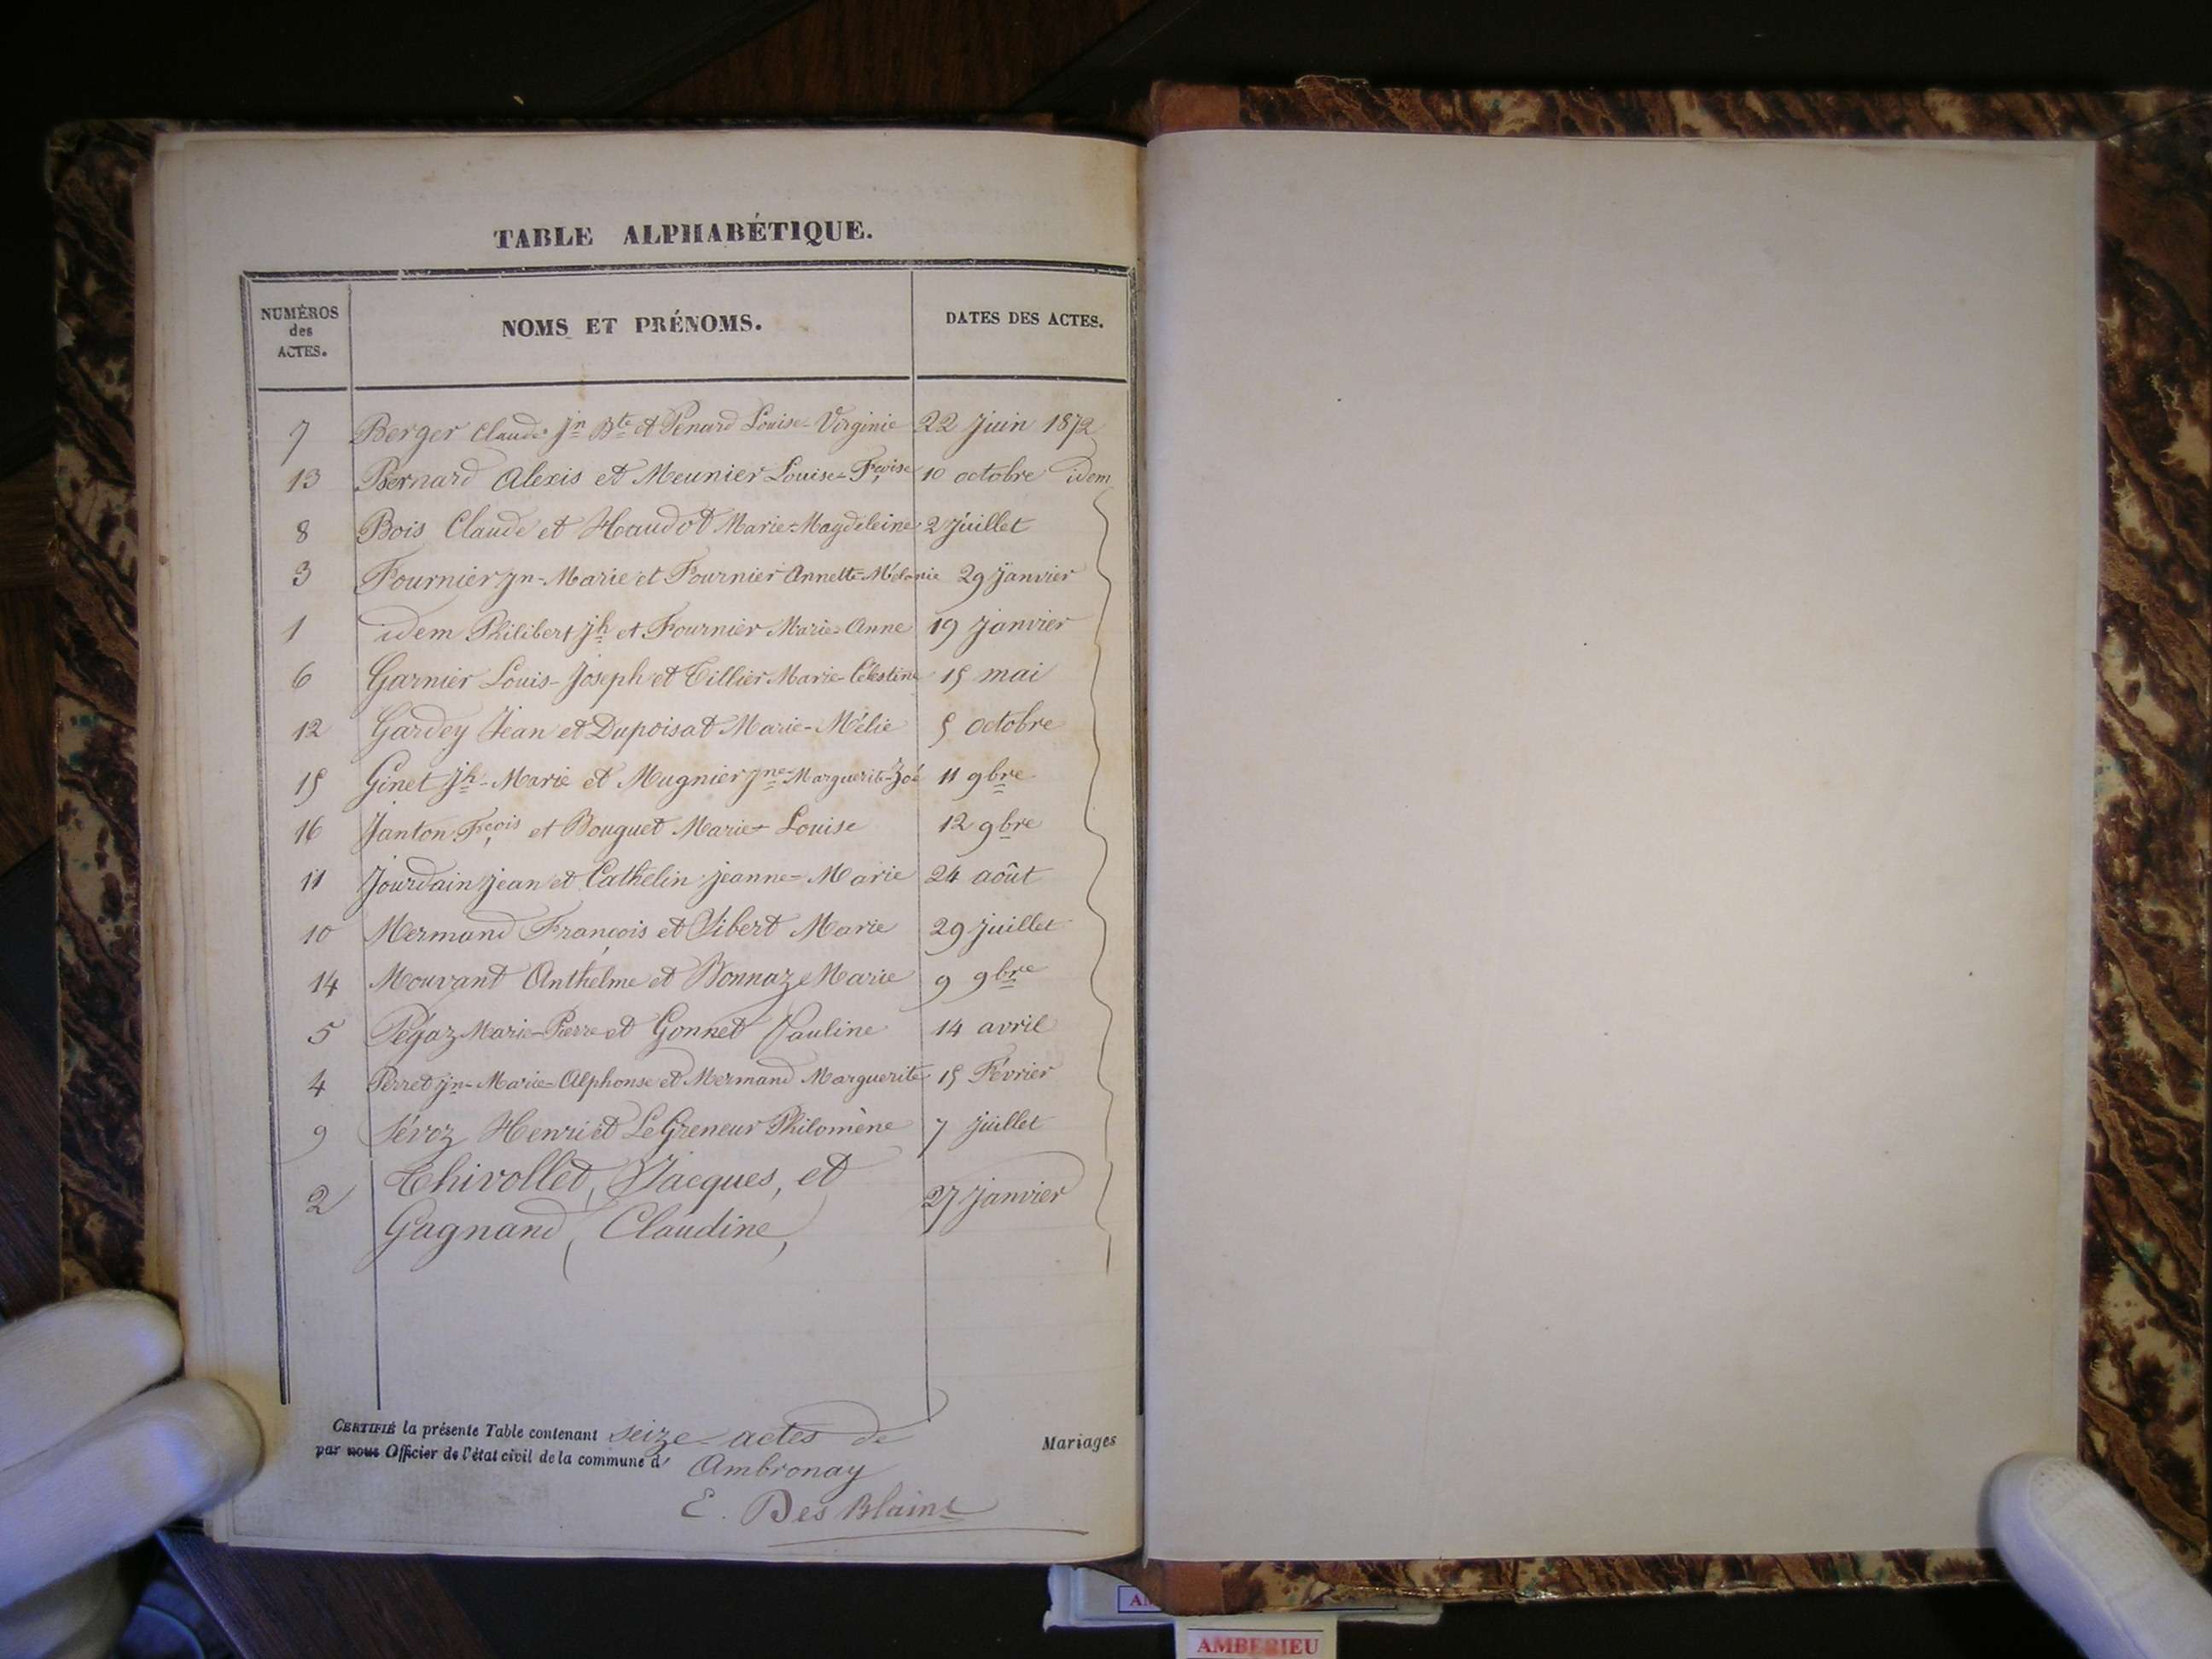 TABLE ALPHABÉTIQUE.
NUMÉROS des ACTES. NOMS ET PRÉNOMS. DATES DES ACTES.
7 Berger Claude Jn Bte et Penard Louise-Virginie 22 Juin 1872
13 Bernard Alexis et Meunier Louise-Frçoise 10 octobre idem
8 Bois Claude et Haudot Marie-Magdeleine 2 Juillet
3 Fournier Jn-Marie et Fournier Annette-Mélanie 29 Janvier
1 idem Philibert Jh et Fournier Marie-Anne 19 Janvier
6 Garnier Louis-Joseph et Tillier Marie-Célestine 15 mai
12 Gardey Jean et Dupoisat Marie-Mélie 5 octobre
15 Ginet Jh-Marie et Mugnier Jne-Marguerite-Zoé 11 9bre
16 Janton Frçois et Bouguet Marie-Louise 12 9bre
11 Jourdain Jean et Cathelin Jeanne-Marie 24 août
10 Mermand François et Vibert Marie 29 Juillet
14 Mouvant Anthelme et Bonnaz Marie 9 9bre
5 Pégaz Marie-Pierre et Gonnet Pauline 14 avril
4 Perret Jn-Marie-Alphonse et Mermand Marguerite 15 Février
9 Sévoz Henri et LeGreneur Philomène 7 Juillet
2 Thivollet, Jacques, et 27 Janvier
Gagnand, Claudine,
CERTIFIÉ la présente Table contenant seize actes de Mariages
par nous Officier de l'état civil de la commune d' Ambronay
E. Des Blains
AMBERIEU